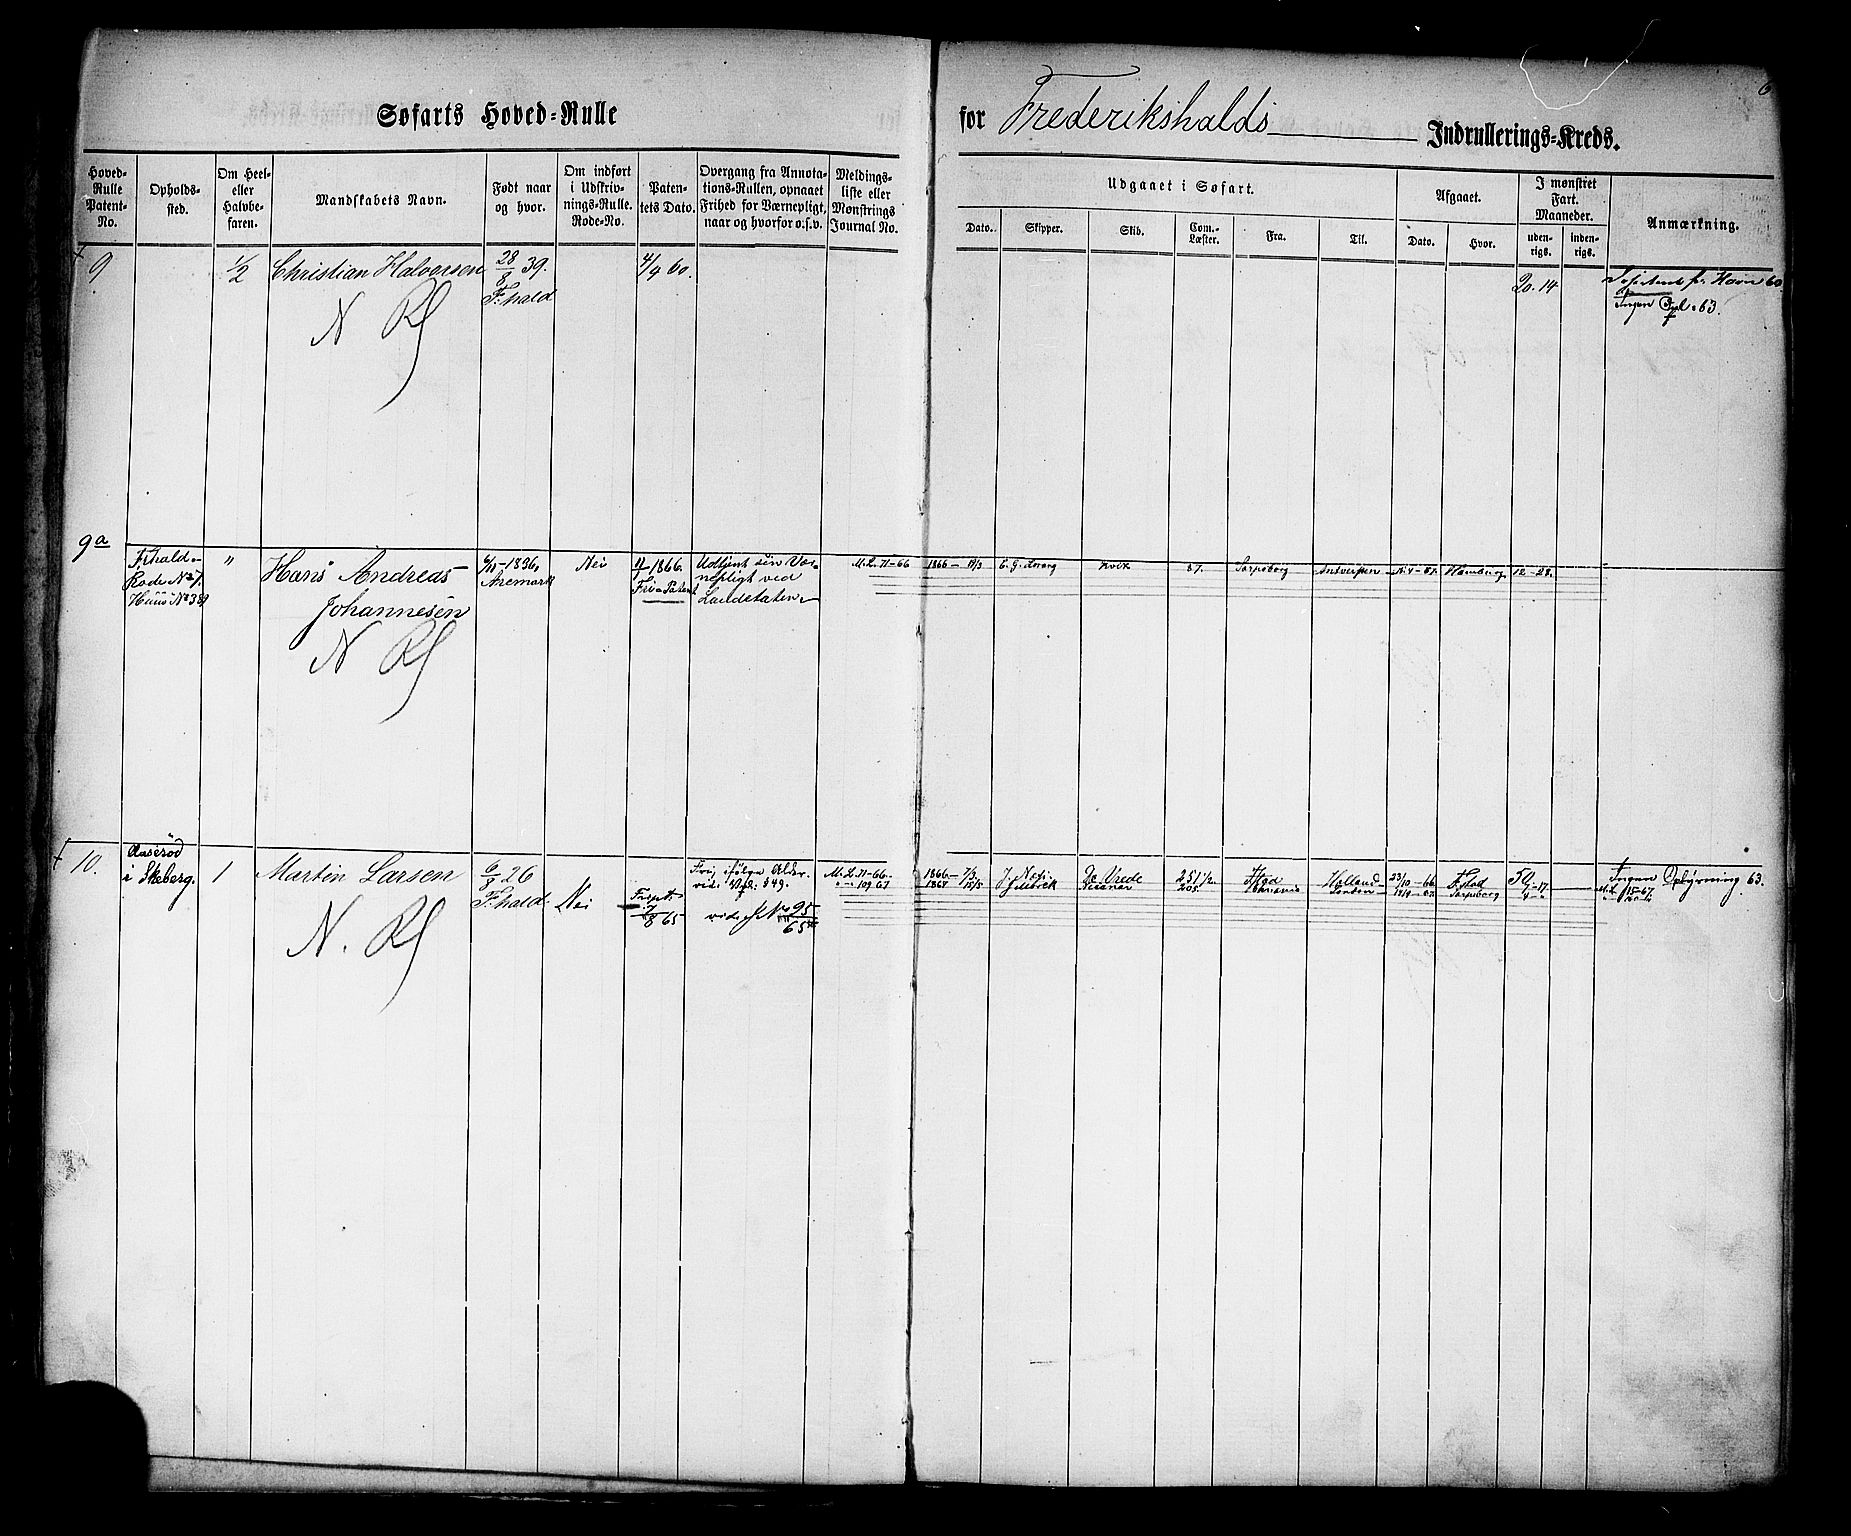 Søfarts Hoved-Rulle
for Frederikshalds Indrullerings-Kreds.
6
Hoved-Rulle Patent-No.
Opholds-sted.
Om Heel- eller Halvbe-faren.
Mandskabets Navn.
Født naar og hvor.
Om indført i Udskriv-nings-Rulle. Rode-No.
Paten-tets Dato.
Overgang fra Annota-tions-Rullen, opnaaet Frihed for Værnepligt, naar og hvorfor o.s.v.
Meldings-liste eller Mønstrings Journal No.
Udgaaet i Søfart.
Dato.
Skipper.
Skib.
Com.-Læster.
Fra.
Til.
Afgaaet.
Dato.
Hvor.
I mønstret Fart. Maaneder.
uden-rigs.
inden-rigs.
Anmærkning.
9
1/2
Christian Halvorsen
N
28/8 39.
F.hald
4/9 60.
20. 14
Havn 60.
Ingen 63.
9a
F.hald
Rode No 7.
Huus No 38
"
Hans Andreas
Johannesen
N
1836,
Aremark
Nei
1866.
Fri-Patent
Udtjent sin Vær-
nepligt ved
Landetaten
M.L. 71-66
1866
Kvik
87.
Sarpsborg
Antwerpen
Hamburg
12-28.
10.
i Skeberg.
1
Martin Larsen
N.
6/8 26
F.hald.
Nei
7/8 65
Fri, ifølge Alder.
vid. Vpl. § 49.
95
65
M.L. 71-66.
109 67
1866
1867
7/3
De Vrede
251 1/2
205
F.stad
Holland
London
23/10-66
F.stad
Sarpsborg
Ingen Opbyrning 63.
M.L. 15-67